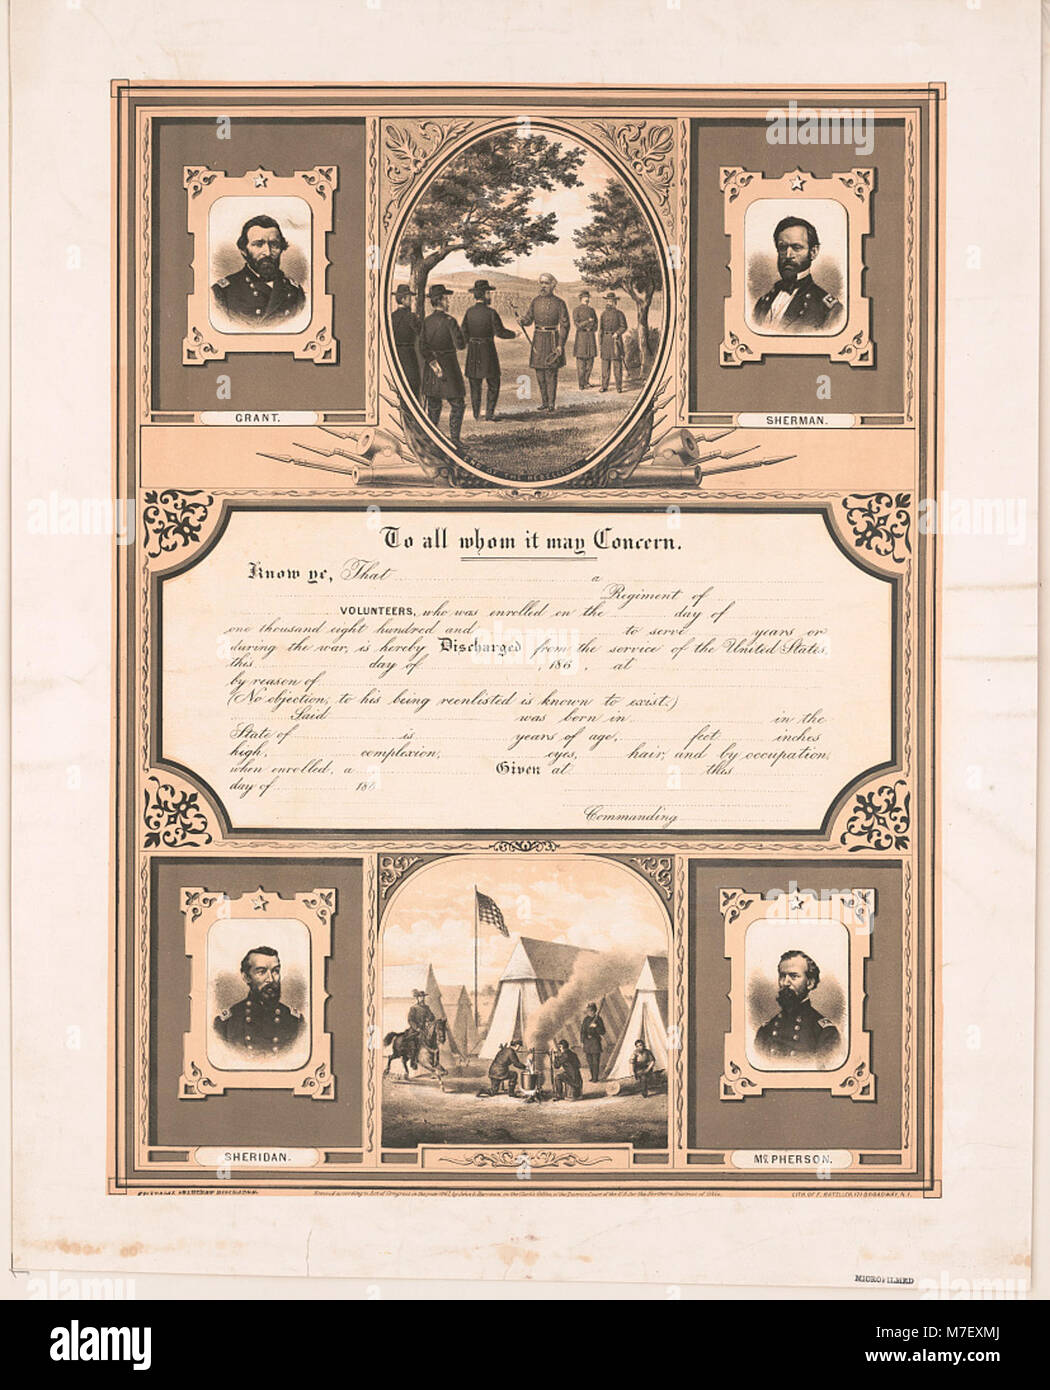 GRANT.
SHERMAN.
OF THE REBELLION
To all whom it may Concern.
Know ye, That a
Regiment of
VOLUNTEERS, who was enrolled on the day of
one thousand eight hundred and to serve years or
during the war, is hereby Discharged from the service of the United States,
this day of , 186 , at
by reason of
(No objection, to his being reenlisted is known to exist.)
Said was born in in the
State of is years of age, feet inches
high, complexion, eyes, hair, and by occupation,
when enrolled, a Given at this
day of 186
Commanding
SHERIDAN.
Mc PHERSON.
Entered according to Act of Congress in the year 1867, by John in the Clerk's Office, of the District Court of the U.S. for the Northern District of Ohio.
LITH. OF F. RATELLER, 171 BROADWAY, N.Y.
MICROFILMED
alamy
www.alamy.com
Image ID: M7EXMJ